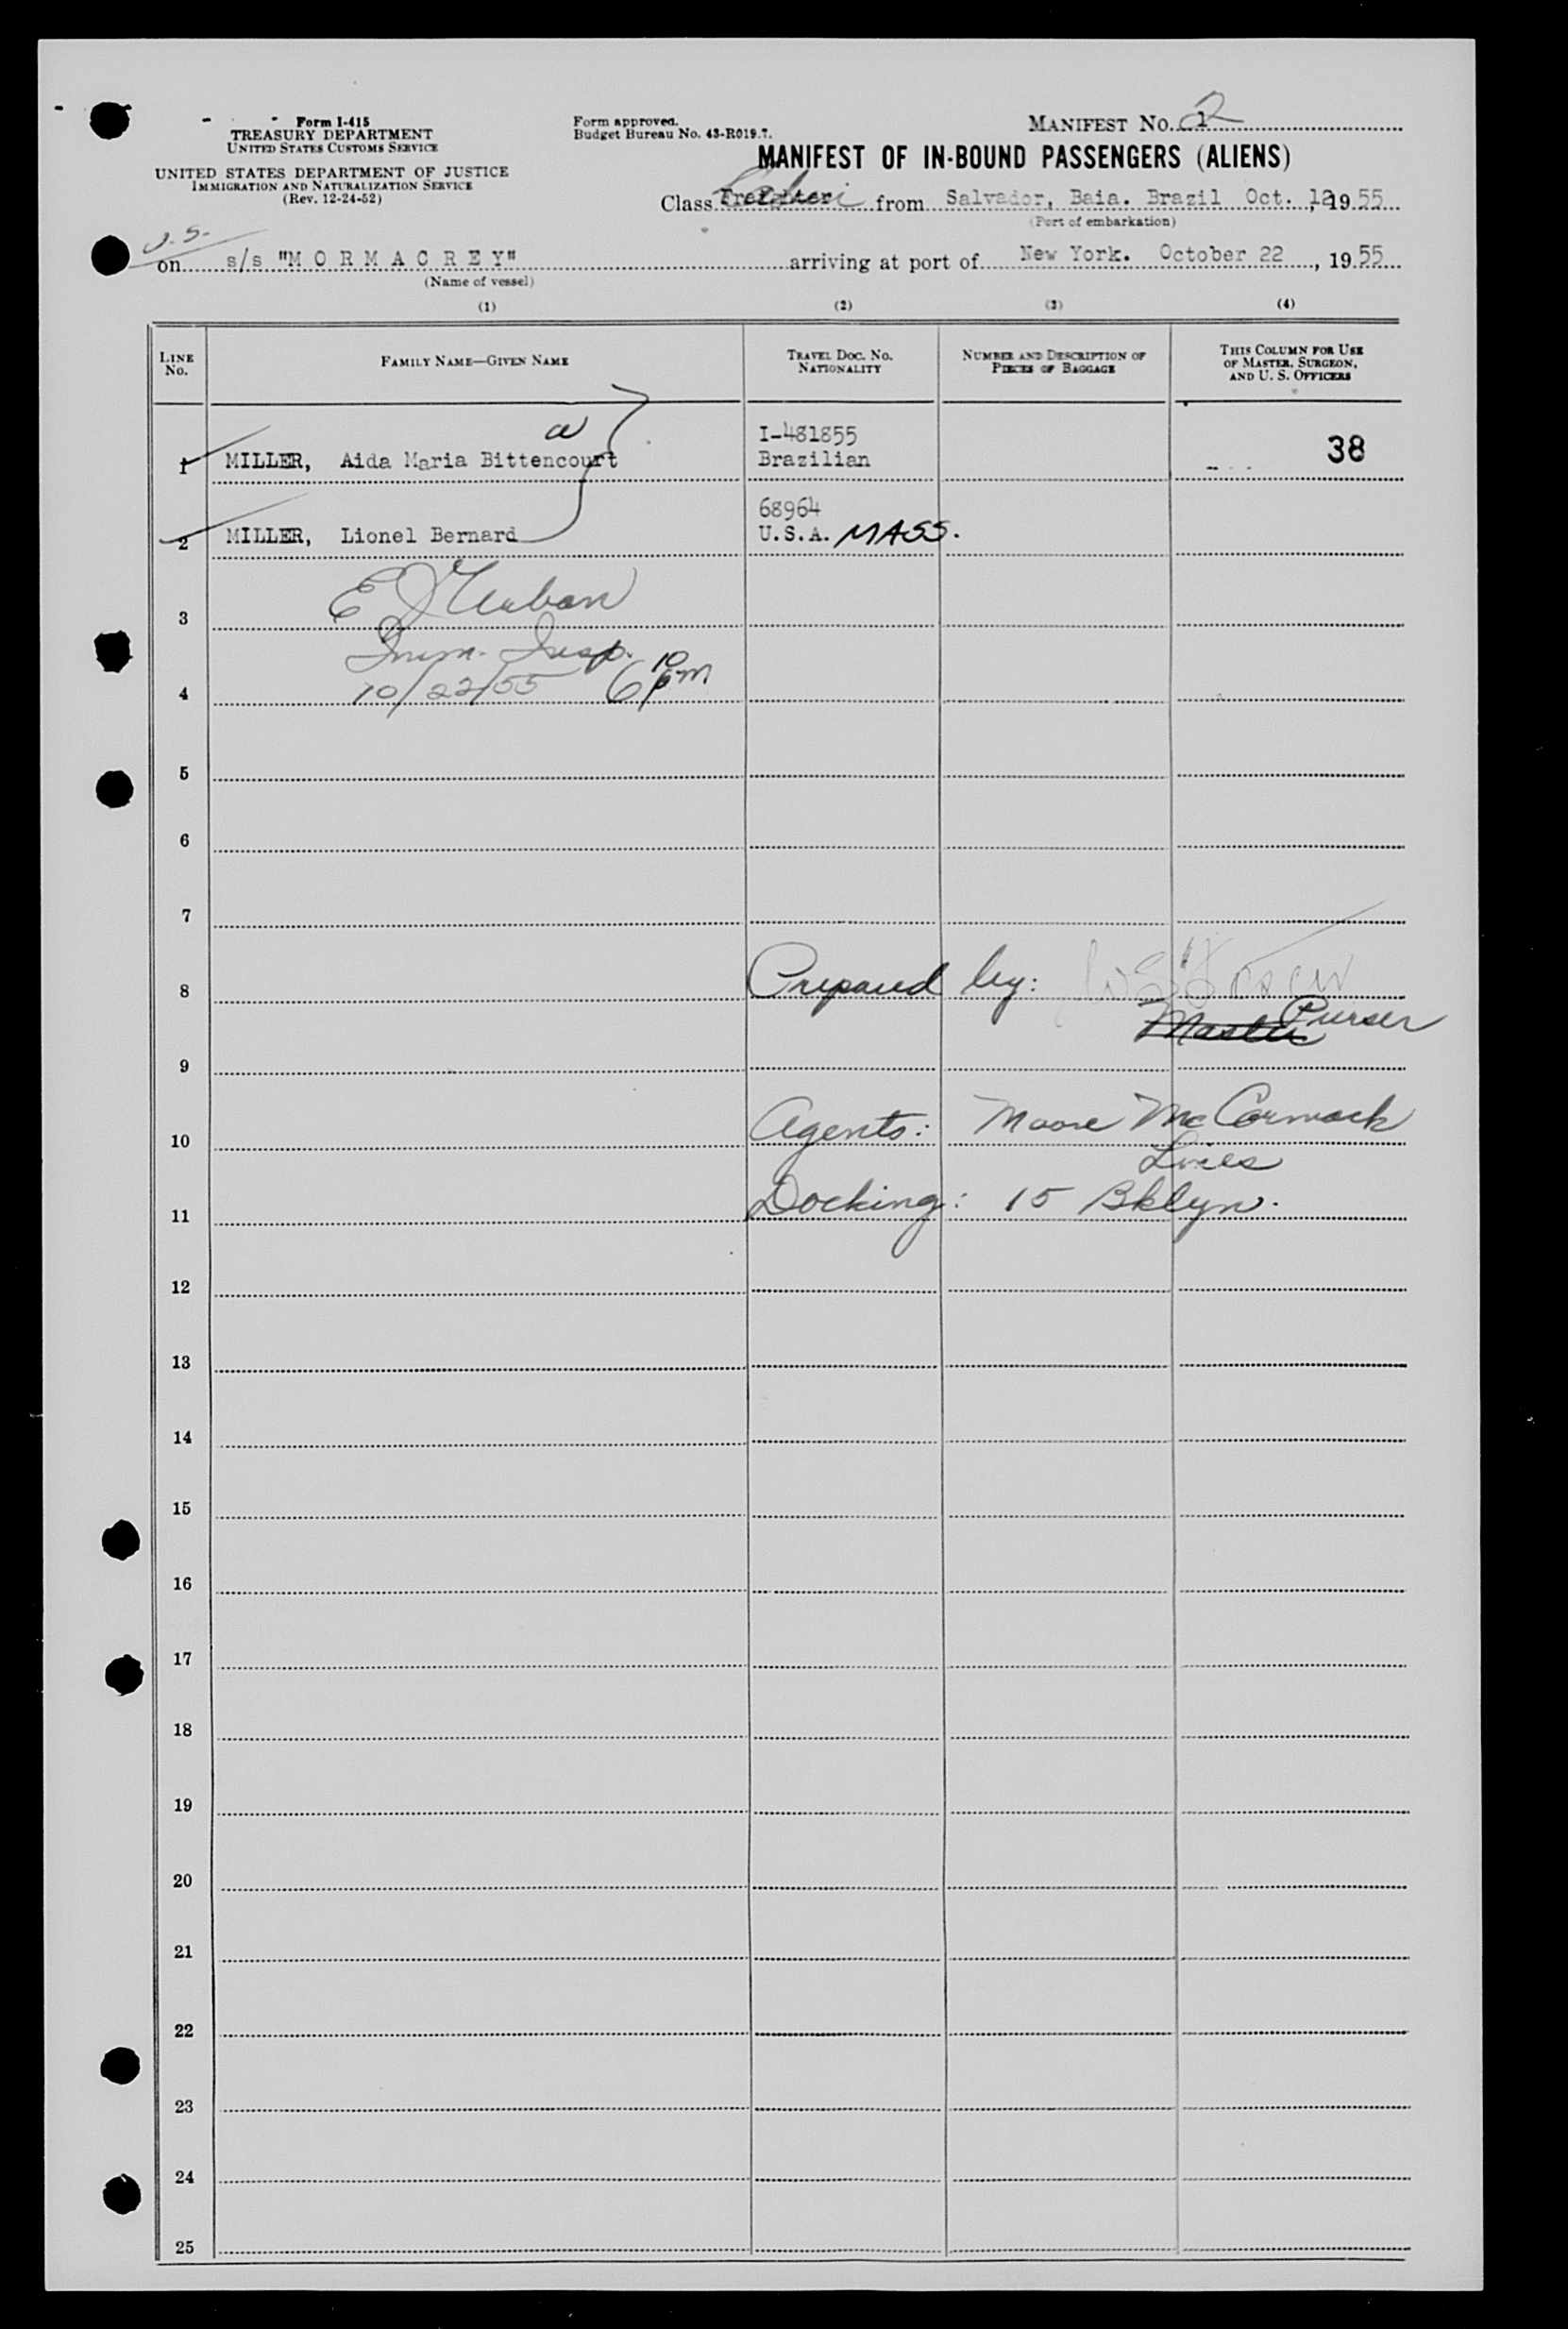 Form I-415
TREASURY DEPARTMENT
UNITED STATES CUSTOMS SERVICE
UNITED STATES DEPARTMENT OF JUSTICE
IMMIGRATION AND NATURALIZATION SERVICE
(Rev. 12-24-52)
Form approved.
Budget Bureau No. 43-R019.7.
MANIFEST No. 2
MANIFEST OF IN-BOUND PASSENGERS (ALIENS)
Class Freighter from Salvador, Baia. Brazil Oct. 12, 1955
(Port of embarkation)
U.S.
on s/s "M O R M A C R E Y" arriving at port of New York. October 22, 1955
(Name of vessel)
(1) (2) (3) (4)
LINE No. FAMILY NAME—GIVEN NAME TRAVEL DOC. No. NATIONALITY NUMBER AND DESCRIPTION OF PIECES OF BAGGAGE THIS COLUMN FOR USE OF MASTER, SURGEON, AND U. S. OFFICERS
I-481855
1 MILLER, Aida Maria Bittencourt Brazilian 38
68964
2 MILLER, Lionel Bernard U.S.A. MASS.
3
Imm. Insp.
4 10/22/55 6 10 pm
5
6
7
8 Prepared by:
Master Purser
9
10 Agents: Moore McCormack
Lines
11 Docking: 15 Bklyn.
12
13
14
15
16
17
18
19
20
21
22
23
24
25